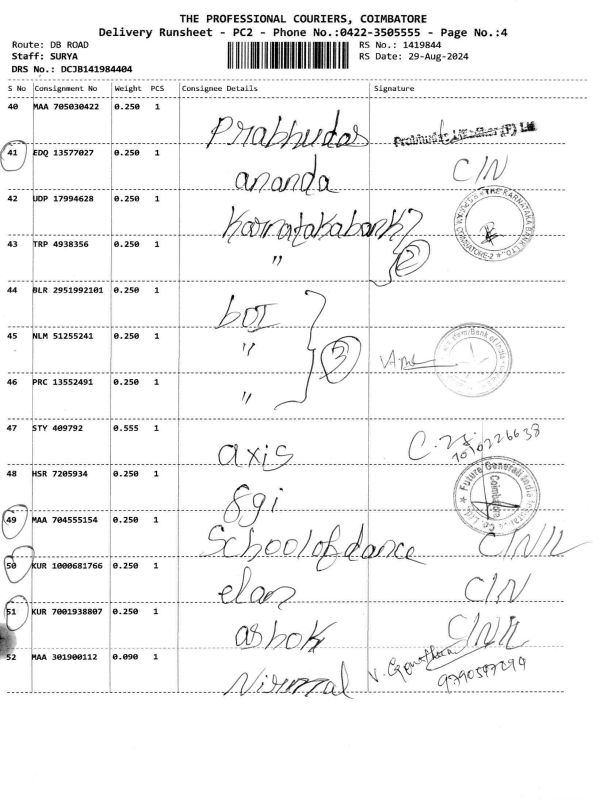 THE PROFESSIONAL COURIERS, COIMBATORE
Delivery Runsheet - PC2 - Phone No.:0422-3505555 - Page No.:4
Route: DB ROAD RS No.: 1419844
Staff: SURYA RS Date: 29-Aug-2024
DRS No.: DCJB141984404
S No Consignment No Weight PCS Consignee Details Signature
40 MAA 705030422 0.250 1 Prabhudas
41 EDQ 13577027 0.250 1 ananda C/N
42 UDP 17994628 0.250 1 Karnatakabank
43 TRP 4938356 0.250 1 " 2
44 BLR 2951992101 0.250 1 boI
45 NLM 51255241 0.250 1 " 3
46 PRC 13552491 0.250 1 "
47 STY 409792 0.555 1 axis
48 HSR 7205934 0.250 1 fgi
Future Generali India
Coimbatore
49 MAA 704555154 0.250 1 School of dance
50 KUR 1000681766 0.250 1 elan C/N
51 KUR 7001938807 0.250 1 ashok
52 MAA 301900112 0.090 1 Nirmal